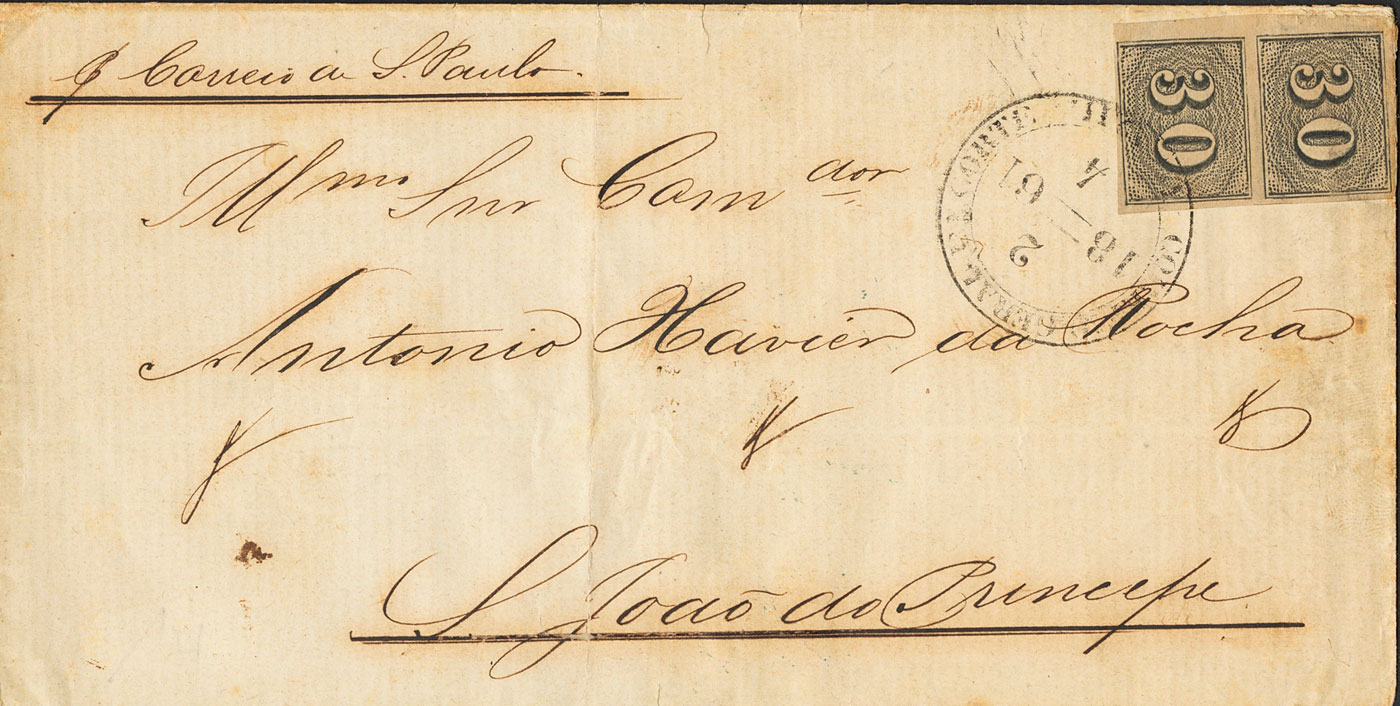 p Correio de S. Paulo.
Illmo Snr Comdor
Antonio Xavier da Rocha
S. João do Principe
30
30
CORREIO GERAL DA CORTE
4 2
1861